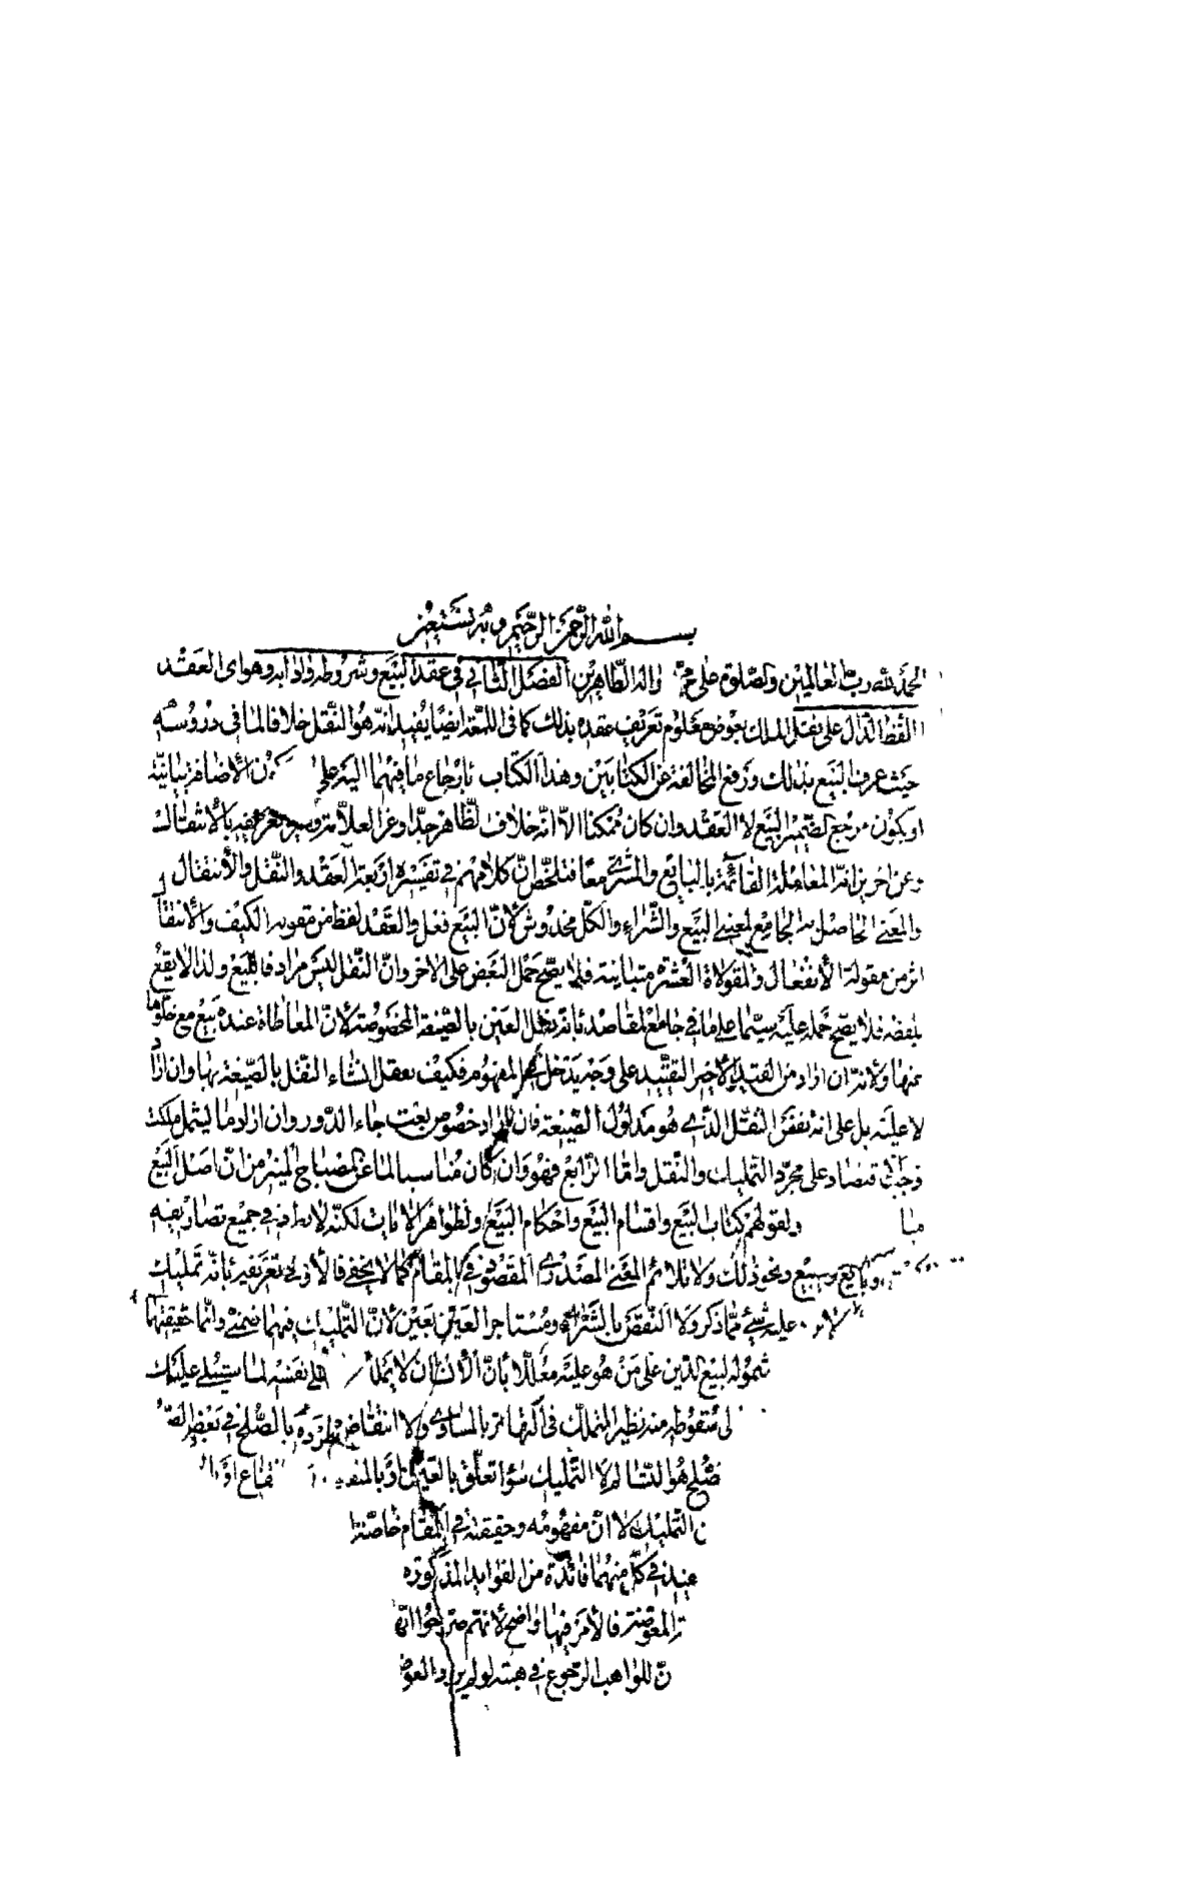 بسم الله الرحمن الرحيم وبه نستعين
الحمد لله رب العالمين والصلوة على محمد واله الطاهرين الفصل الثاني في عقد البيع وشروطه وادابه وهو اى العقد
اللفظ الدال على نقل الملك بعوض معلوم تعريف عقده بذلك كما في اللمعة ايضا يفيد انه هو النقل خلافا لما في دروسه
حيث عرف البيع بذلك ورفع المخالفة عن الكتابين وهذا الكتاب بارجاع ما فيهما اليه على كون الاضافة بيانية
او يكون مرجع الضمير البيع لا العقد وان كان ممكنا الا انه خلاف الظاهر جدا وعن العلامة وغيره تعريفه بالانتقال
وعن اخرين انه المعاملة القائمة بالبايع والمشترى معا فتلخص ان كلامهم في تفسيره اربعة العقد والنقل والانتقال
والمعنى الحاصل به الجامع لمعنى البيع والشراء والكل مخدوش لان البيع فعل والعقد لفظ من مقوله الكيف والانتقال
اثر من مقولة الانفعال والمقولاة العشرة متباينة فلا يصح حمل البعض على الاخر وان النقل ليس مرادفا للبيع ولذا لا يقع
بلفظه فلا يصح حمله عليه سيما على ما في جامع المقاصد بانه نقل العين بالصيغة المخصوصة لان المعاطاة عنده بيع مع خلوها
عنها ولانه ان اراد من القيد الاخير التقييد على وجه يدخل في المفهوم فكيف يعقل انشاء النقل بالصيغة بها وان اراد
لا عليته بل على انه نفس النقل الذى هو مدلول الصيغة فان اراد خصوص بعت جاء الدور وان اراد ما يشمل ملكت
وجب الاقتصار على مجرد التمليك والنقل واما الرابع فهو وان كان مناسبا لما عن المصباح المنير من ان اصل البيع
ولقولهم كتاب البيع واقسام البيع واحكام البيع ولظواهر الايات لكنه لا في جميع تصاريفه
وبايع ومبيع ونحو ذلك ولا تلائم المعنى المصدرى المقصود في المقام كما لا يخفى فالاولى تعريفه بانه تمليك
عليه شئ مما ذكر ولا النقض بالشراء ومستاجر العين بعين لان التمليك فيهما ضمنى وانما حقيقتهما
شموله لبيع الدين على من هو عليه معللا بان الانسان لا يملك على نفسه لما سيتلى عليك
سقوطه منه نظير التملك في انها بالمساوى ولا انتقاض طرده بالصلح في بعض
صلح هو التسالم لا التمليك سواء تعلق بالعين او بالمنفعة
التمليك لا ان مفهومه وحقيقته في المقام خاصة
في كل منهما فائدة من الفوايد المذكورة
المعوضة فالامر فيها واضح لانهم صرحوا
ان للواهب الرجوع في هبته لو لم يرد العوض